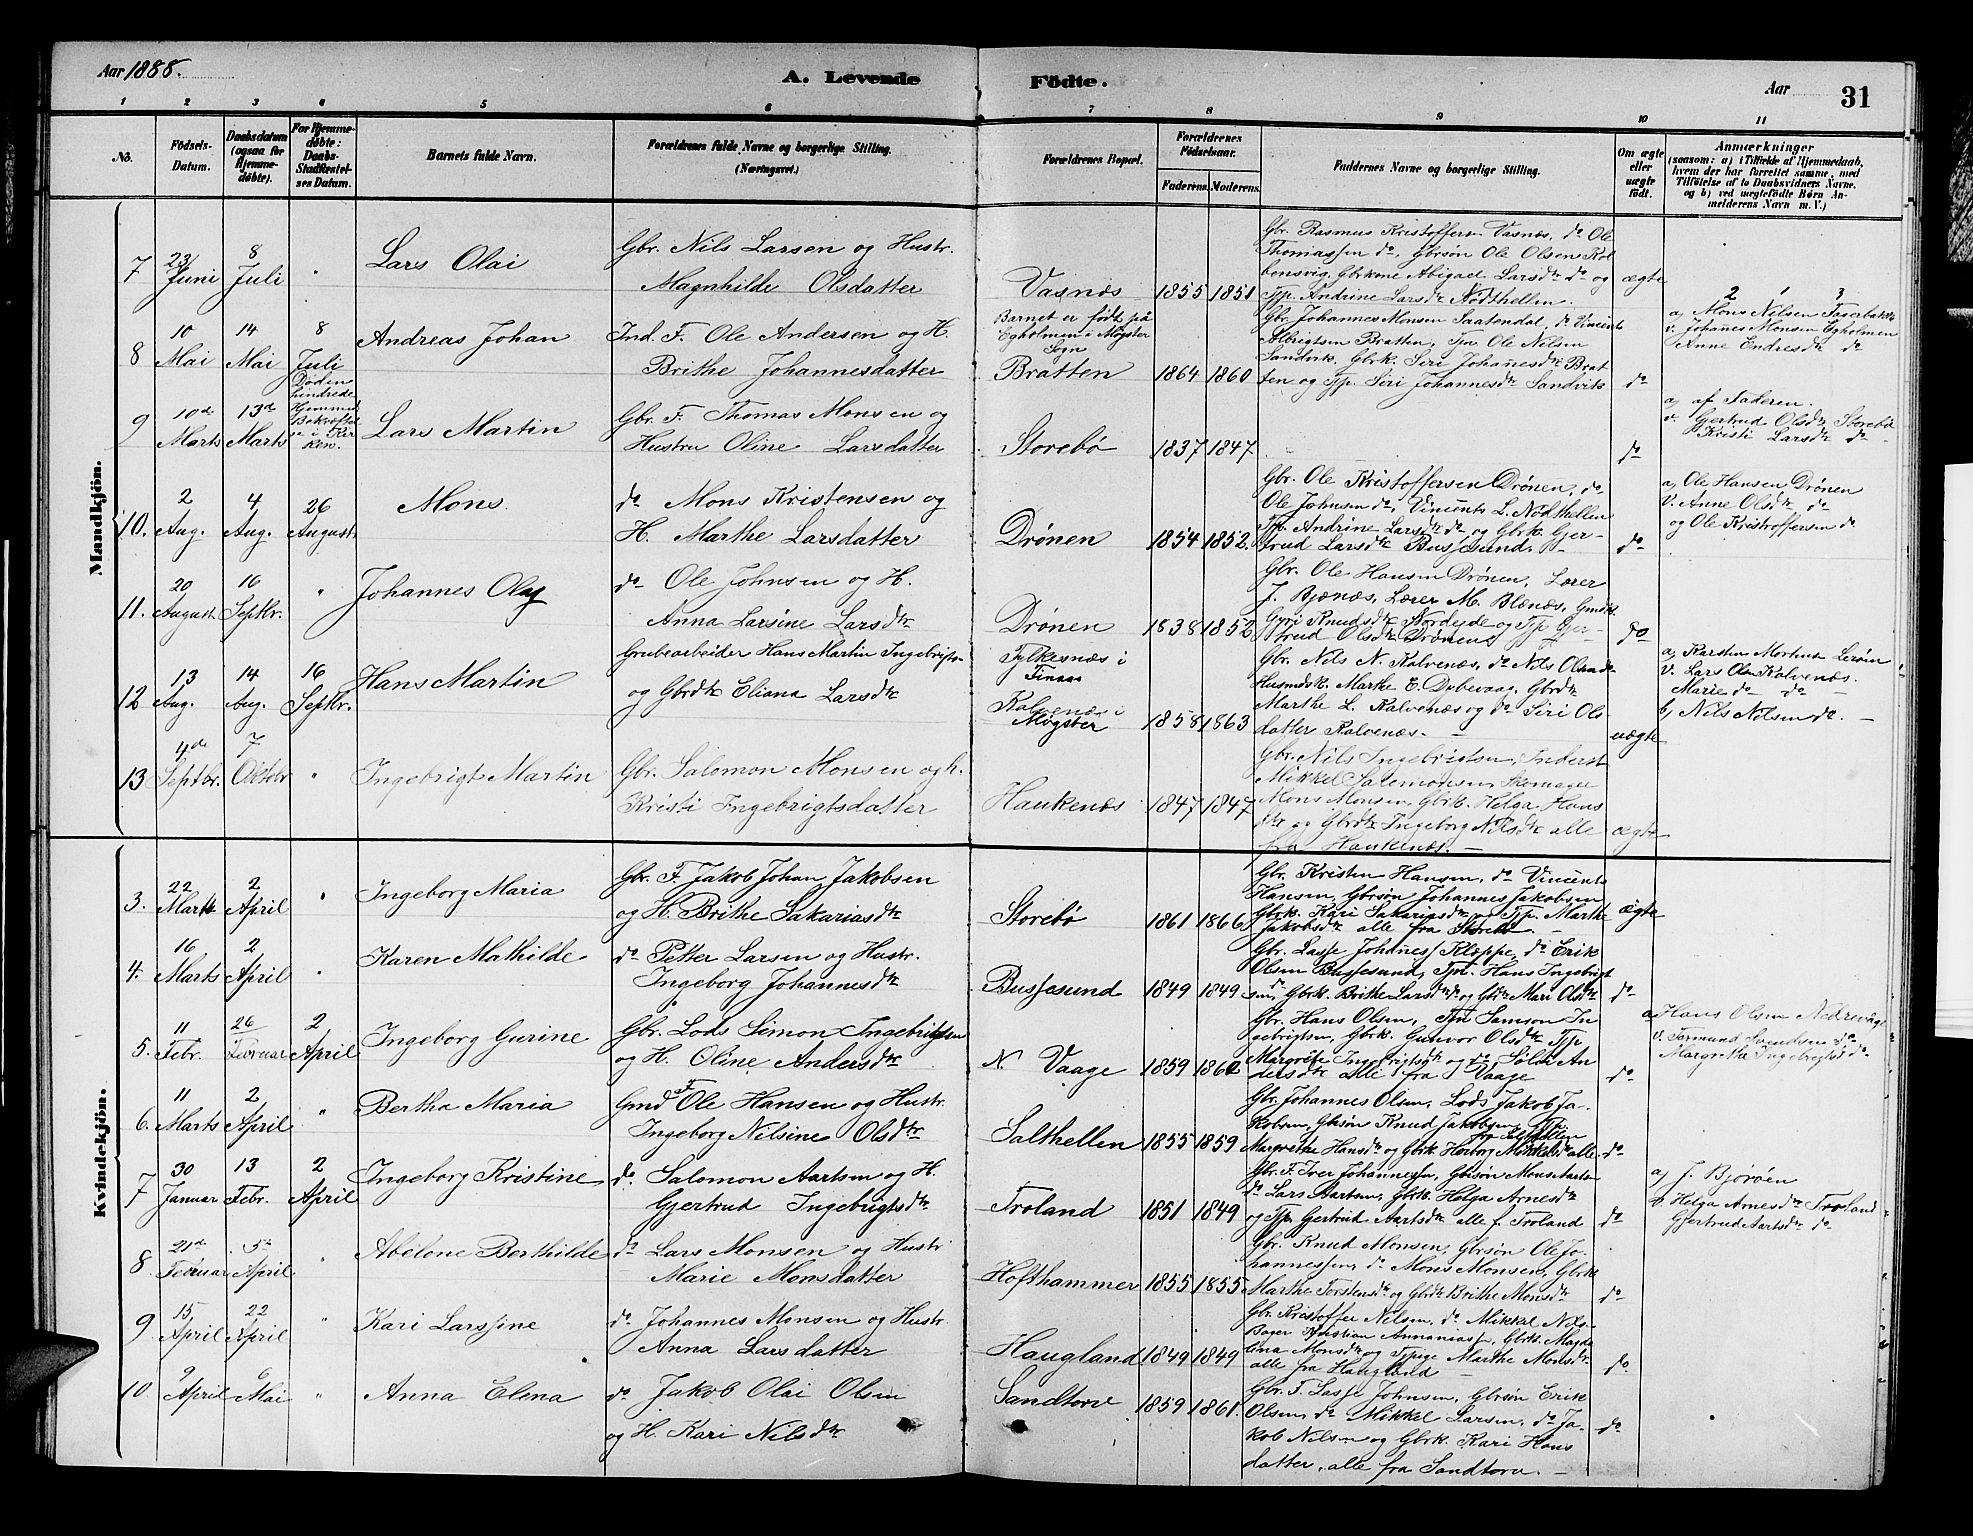 Aar 1888.
A. Levende
Födte.
Aar
31
1 2 3 4 5 6 7 8 9 10 11
No.
Födsels-
Datum.
Daabsdatum
(ogsaa for
Hjemme-
døbte).
For Hjemme-
døbte:
Daabs-
Stadfæstel-
ses Datum.
Barnets fulde Navn.
Forældrenes fulde Navne og borgerlige Stilling.
(Næringsvei.)
Forældrenes Bopæl.
Forældrenes
Födselsaar.
Faderens.
Moderens.
Faddernes Navne og borgerlige Stilling.
Om ægte
eller
uægte
födt.
Anmærkninger
(saasom: a) i Tilfælde af Hjemmedaab,
hvem der har forrettet samme, med
Tilföielse af to Daabsvidners Navne.
og b) ved uægtefödte Børn An-
melderens Navn m. V.)
Mandkjön.
7
23/ Juni
8 Juli
"
Lars Olai
Gbr. Nils Larsen og Hustr.
Magnhilde Olsdatter
Vasnæs
1855 1851
Gbr. Rasmus Kristoffersen Vasnæs, do Ole
Thomassen do, Gbrsön Ole Olsen Kol
bensvig, Gbrkone Abigael Larsdtr do og
Tjp. Andrine Larsdtr Nödthellen.
ægte
8
10 Mai
14 Mai
8 Juli
Andreas Johan
Ind. F. Ole Andersen og H.
Brithe Johannesdatter
Barnet er født på
Egholmen i Møgster
Sogn
Bratten
1864 1860
Gbr. Johannes Monsen Saatendal, do Vincent
Albrigtsen Bratten, Tjn. Ole Nilsen
Sandvik, Gbrk. Siri Johannesdtr Brat
ten og Tjp. Siri Johannesdtr Sandvik
do
2 1 3
a, Mons Nilsen Fagerbakke
v. Johanes Monsen Egholmen
Anne Endresdtr do
9
10de Marts
13de Marts
Døden
hindrede
Hjemmed.
Bekræftel
se i Kir
ken.
Lars Martin
Gbr. F. Thomas Monsen og
Hustru Oline Larsdatter
Storebø
1837 1847
do
a, af Faderen.
v. Gjertrud Olsdtr Storebø
Kristi Larsdtr do
10.
2 Aug.
4 Aug.
26 August
Mons.
do Mons Kristensen og
H. Marthe Larsdatter
Drönen
1854 1852.
Gbr. Ole Kristoffersen Drönen, do
Ole Johnsen do, Vincents L. Nödthellen
Tjp. Andrine Larsdtr do og Gbrk. Gjer-
trud Larsdtr Bussesund. -
do
a, Ole Hansen Drönen
V. Anne Olsdtr do
og Ole Kristoffersen do
11.
20 August
16 Septbr.
"
Johannes Olaf
do Ole Johnsen og H.
Anna Larsine Larsdtr
Drönen
1838 1852
Gbr. Ole Hansen Drönen, Lærer
J. Bjønæs, Lærer M. Blænæs, Gmdk
Gyri Knudsdtr Nordeide og Tjp Gjer-
trud Olsdtr Drönen
do
12
13 Aug.
14 Aug.
16 Septbr.
Hans Martin
Grubearbeider Hans Martin Ingebrigts-
og Gbrdtr Eliana Larsdtr
Fylkesnæs i
Finaas
Kalvenæs i
Møgster
1858 1863
Gbr. Nils N. Kalvenæs, do Nils Olsen do
Husmdsk. Marthe E. Dybevaag, Gbrdtr
Marthe L. Kalvenæs og do Siri Ols-
datter Kalvenæs. -
uægte
a, Karsten Mortens Lerøen
V. Lars Olsen Kalvenæs.
Marie do do
b, Nils Nilsen do. -
13
4de Septbr.
7 Oktobr
"
Ingebrigt Martin
Gbr. Salomon Monsen og h.
Kristi Ingebrigtsdatter
Haukenæs
1847 1847
Gbr. Nils Ingebrigtsen, Inderst
Mikkel Salomonsen, Skomager
Mons Monsen, Gbrk. Helga Hans
dtr og Gbrdtr Ingeborg Nilsdtr alle
fra Haukenæs. -
ægte
Kvindekjön.
3.
22 Marts
2 April
"
Ingeborg Maria
Gbr. F. Jakob Johan Jakobsen
og H. Brithe Sakariasdtr
Storebö
1861 1866
Gbr. Kristen Hansen, do Vincents
Hansen, Gbrsön Johannes Jakobsen
Gbrk. Kari Sakariasdtr og Tjp. Marthe
Jakobsdtr alle fra Storebö. -
ægte
4.
16 Marts
2 April
"
Karen Mathilde
do Petter Larsen og Hustr.
Ingeborg Johannesdtr
Bussesund
1849 1849
Gbr. Lasse Johaness. Kleppe, do Erik
Olsen Bussesund, Tjn. Hans Ingebrigt
sen do, Gbrk. Brithe Larsdtr do og Gbrdtr Mari Olsdtr
do
5.
11 Febr.
26 Februar
2 April
Ingeborg Gurine
Gbr. Lods Simon Ingebrigtsen
og H. Oline Andersdtr
N. Vaage
1859 1862
Gbr. Hans Olsen, Tjn Samson In
gebrigtsen, Gbrk. Gunvor Olsdtr Tjp
Margrete Ingebrigtsdtr og do Sölvi An
dersdtr alle fra Vaage
do
a, Hans Olsen Nedrevåge
V. Tormund Samdsen do
Margrethe Ingebrigtsd do
6.
11 Marts
2 April
"
Bertha Maria
Gmd F Ole Hansen og Hustr.
Ingeborg Nilsine Olsdtr
Salthellen
1855 1859
Gbr. Johannes Olsen, Lods Jakob Ja-
kobsen, Gbrsön Knud Jakobsen, Tjp.
Margrethe Hansdtr og Gbrk. Herborg Mikkelsdtr alle
fra Salthellen
do
7
30 Januar
13 Febr.
2 April
Ingeborg Kristine
do Salomon Aartsen og H.
Gjertrud Ingebrigtsdtr
Troland
1851 1849
Gbr. F. Iver Johannessen, Gbrsön Mons Aarts-
do Lars Aartsen, Gbrk. Helga Arnesdtr
og Tjp. Gjertrud Aartsdtr alle f. Troland
do
a, J. Bjørøen
v. Helga Arnesdtr Troland
Gjertrud Aartsdtr do
8
21de Februar
5te April
"
Abelone Berthilde
do Lars Monsen og Hustr
Marie Monsdatter
Hofthammer
1855 1855
Gbr. Knud Monsen, Gbrsön Ole Jo-
hannessen, do Mons Monsen, Gbrk
Marthe Torstensdtr og Gbrdtr Brithe Monsdtr
do
9
15 April
22 April
"
Kari Larssine
do Johannes Monsen og Hustr
Anna Larsdatter
Haugland
1849 1849
Gbr. Kristoffer Nilsen, do Mikkel Nils-
Bager Kristian Annaniass, Gbrk. Magda
lena Monsdtr og Tjpige Marthe Monsdtr
alle fra Haugland -
do.
10
9 April
6 Mai
"
Anna Elena
do Jakob Olai Olsen
og H. Kari Nilsdtr
Sandtorv
1859 1861.
Gbr. F. Lasse Johnsen, Gbrsön Erik
Olsen, do Mikkel Larsen, do Ja-
kob Nilsen og Gbrk. Kari Hans
datter, alle fra Sandtorv. -
do